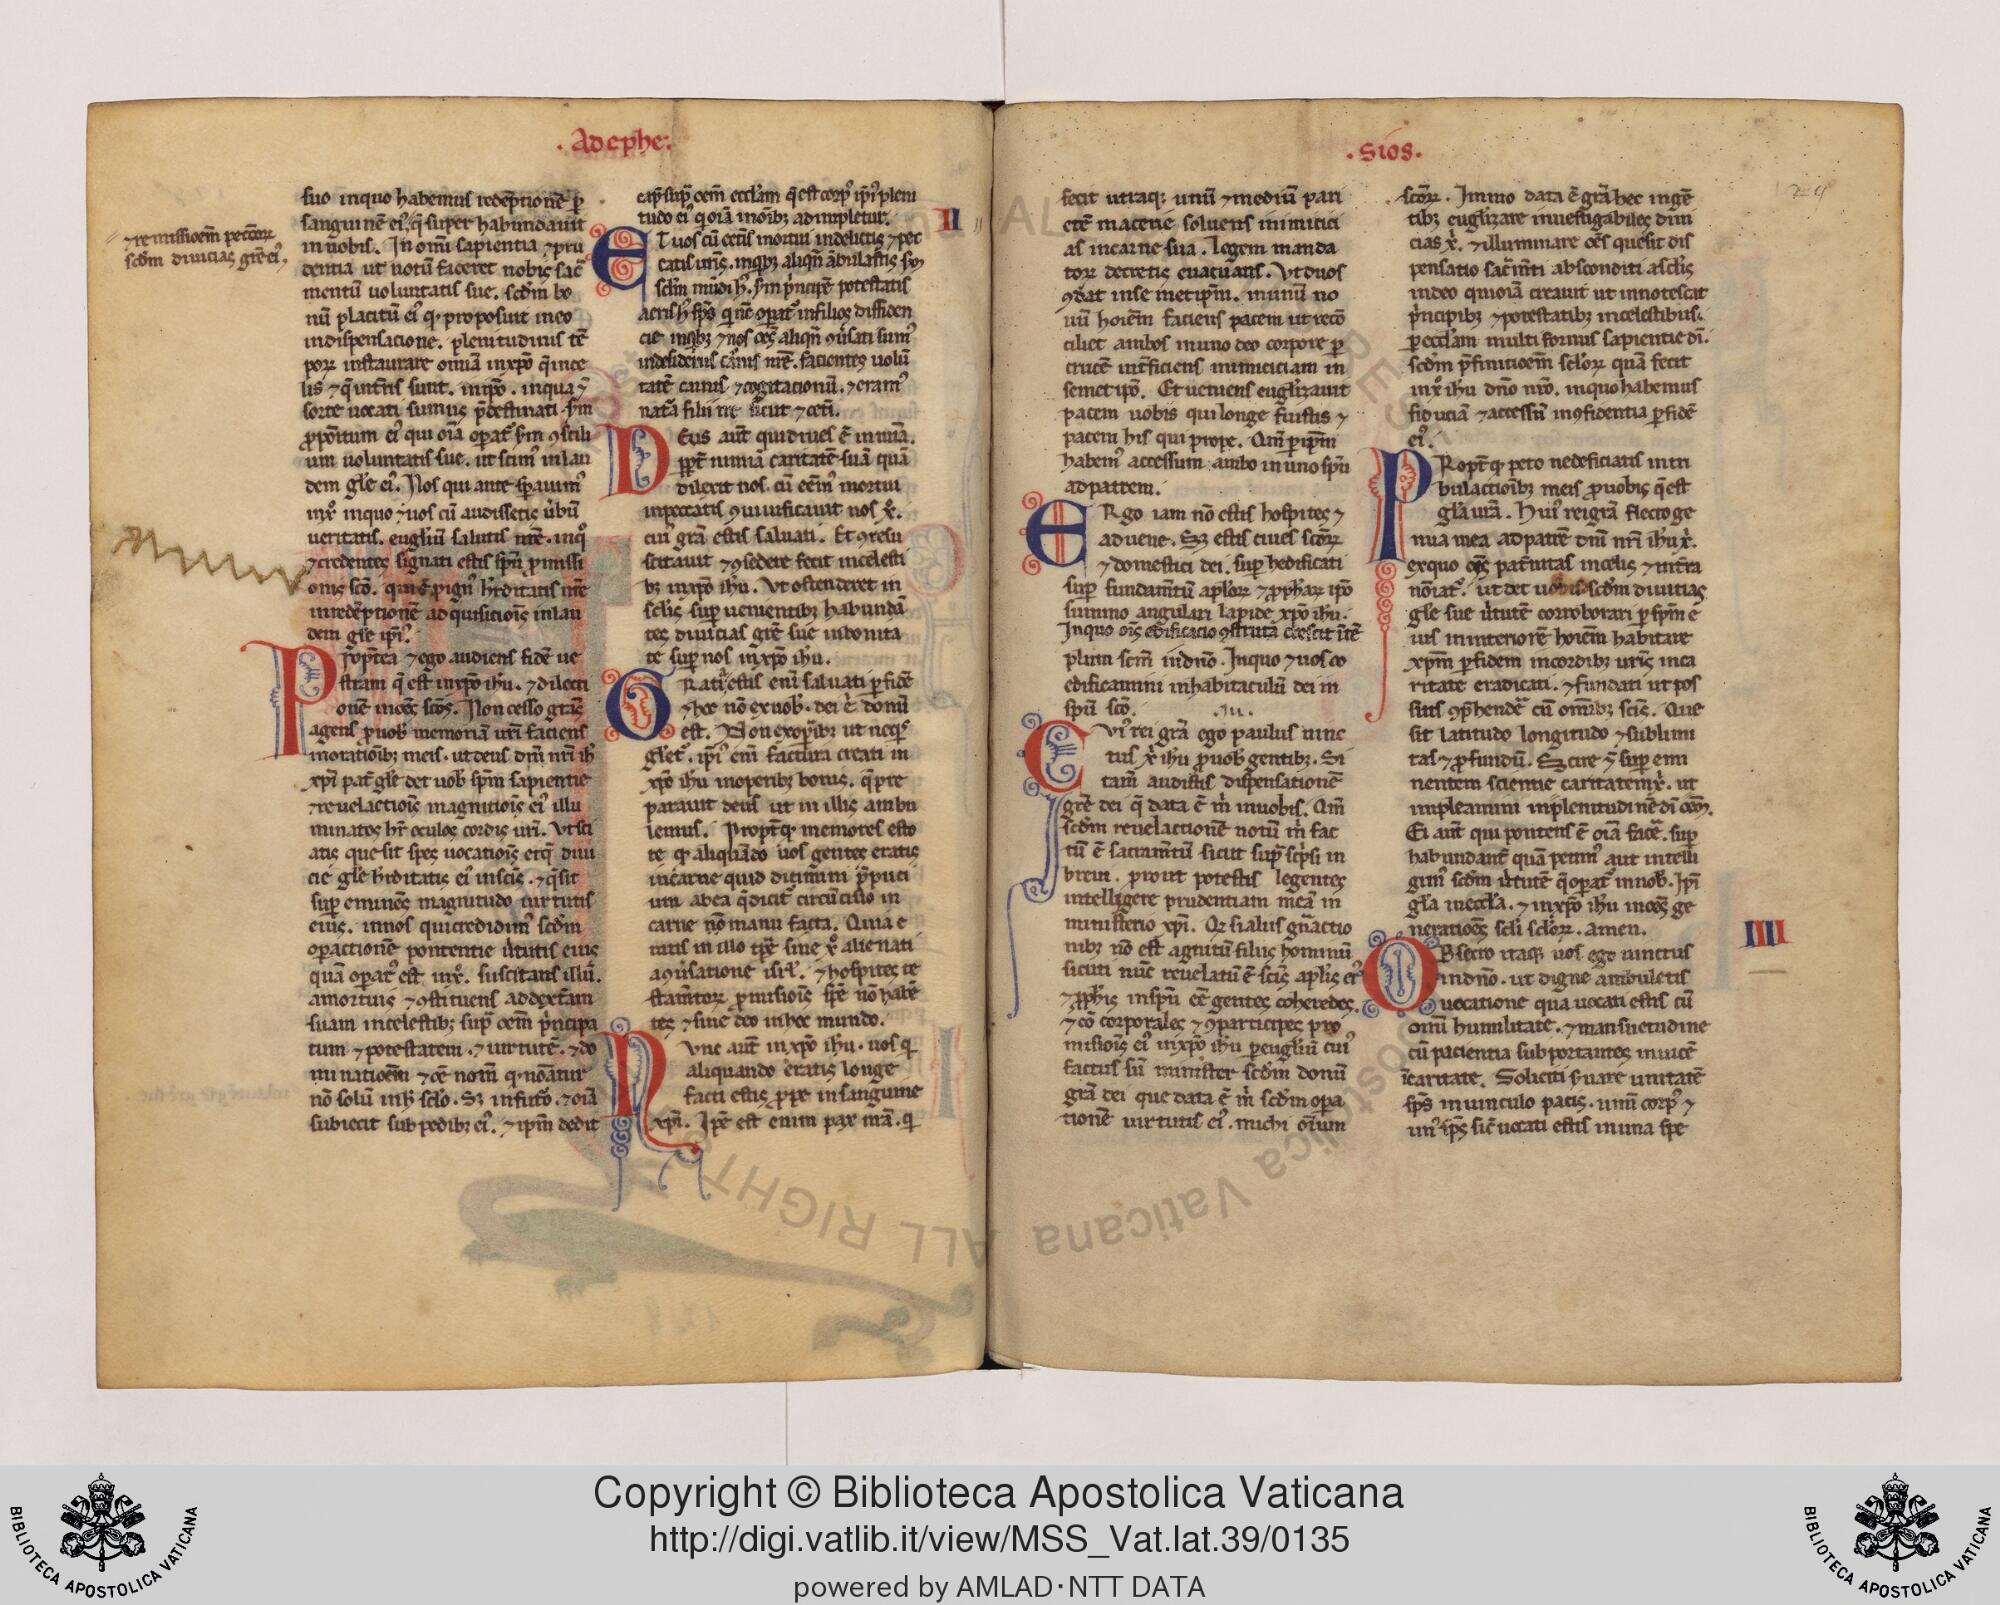 . Ad ephe:
suo inquo habemus redēptionē ꝑ
sanguinē ei᷒, q̄ super habundauit
in nobis. In om̄i sapientia ⁊ pru
dentia ut notū faceret nobis sac̄
mentū uoluntatis sue. scd̄m bo
nū placitū ei᷒ q᷒ proposuit in eo
in dispensacione. plenitudinis tē
poꝝ instaurare omīa inxp̄o q̄ in ce
lis ⁊ q̄ int̄ris sunt. in ip̄o. in qua ⁊
sorte uocati sumus p̄destinati
um uoluntatis sue. ut sim᷒ in lau
dem gl̄e ei᷒. Nos qui ante sꝑauim᷒
in xp̄o in quo ⁊ uos cū audissetis ūbū
ueritatis. eugliū salutis ur̄e. in q᷒
⁊ credentes signati estis sp̄u ꝓmissi
onis sc̄o. qui ē pign᷒ h̄reditatis nr̄e
in redēptionē ad quisicioīs in lau
dem gl̄e ip̄i᷒.
Propt̄ea ⁊ ego audiens fidē ue
stram q̄ est in xp̄o ih̄u. ⁊ dilecti
onē in oēs sc̄os. Non cesso gr̄as
agens ꝓ uob̄ memoriā ur̄i faciens
in oratioīb; meis. ut deus dn̄i nr̄i ih̄
xp̄i pat̄ gl̄e det uob̄ sp̄m sapientie
⁊ reuelactioīs in agnitioīs ei᷒ illu
minatos hr̄e oculos cordis ur̄i. Ut sci
atis que sit spes uocatioīs ei᷒ ⁊ q̄ diui
cie gl̄e h̄reditatis ei᷒ in sc̄is. ⁊ q̄ sit
suꝑ eminēs magnitudo uirtutis
eius. in nos qui credidim᷒ scd̄m
oꝑactionē pontentie ūtutis eius
quā oꝑat᷒ est in xp̄. suscitans illū
a mortuis ⁊ ꝯstituens ad dext̄am
suam in celestib; sup̄ oēm p̄ncipa
tum ⁊ potestatem. ⁊ uirtutē. ⁊ do
minatioēm ⁊ oē nom̄ q᷒ noīatur
nō solū in h᷒ sc̄lo. Sꝫ in futuro. ⁊ oīa
subiecit sub pedib; ei᷒. ⁊ ip̄m dedit
⁊ remissioēm peccatoꝝ
scd̄m diuicias gr̄e ei᷒.
cap̄ sup̄ oēm eccl̄am q̄ est corp᷒ ip̄i᷒ pleni
tudo ei᷒ q oīa in oīb; adimpletur.
II
Et uos cū eētis mortui in delictis ⁊ pec
catis ur̄is. in quib; aliqn̄ ābulastis
scl̄m mūdi h᷒. p̄ncipē potestatis
aeris h᷒ sp̄s q̄ nc̄ oꝑat᷒ in filios diffiden
cie in qib; ⁊ nos oēs aliqn̄ ꝯūsati sum᷒
in desideriis carnis nr̄e. facientes uolū
tatē carnis ⁊ cogitacionū. ⁊ eram᷒
nat̄a filii ire sicut ⁊ cet̄i.
Deus aut̄ qui diues ē in mīa.
ꝓpt̄ nimiā caritatē suā quā
dilexit nos. cū eēm᷒ mortui
in peccatis ꝯuiuificauit nos xp̄.
cui᷒ grā estis saluati. Et ꝯresu
scitauit ⁊ ꝯsedere fecit in celesti
b; in xp̄o ih̄u. Ut ostenderet in
sc̄lis suꝑ uenientib; habundā
tes diuicias gr̄e sue in bonita
te suꝑ nos in xp̄o ih̄u.
Gratia estis eni᷒ saluati ꝑ fidē
⁊ hoc nō ex uob̄. dei ē donū
est. Non ex oꝑib; ut ne qis
glet᷒. ip̄i᷒ em̄ factura creati in
xp̄o ih̄u in operib; bonis. q̄ pre
parauit deus ut in illis ambu
lemus. Propt̄ q᷒ memores esto
te q᷒ aliquādo uos gentes eratis
in carne quid dicimini p̄puci
um ab ea q̄ dicit᷒ circūcisio in
carne nō manu facta. Quia e
ratis in illo tp̄e sine xp̄o alienati
a ꝯūsatione isrl̄. ⁊ hospites te
stam̄toꝝ ꝓmisioīs spē nō habē
tes ⁊ sine deo in hoc mundo.
Nunc aut̄ in xp̄o ih̄u. uos q̄
aliquando eratis longe
facti estis prope in sanguine
xp̄i. Ip̄e est enim pax nr̄a. q̄
. sios.
fecit utraq; unū ⁊ mediū pari
etē macerie soluens inimici
as in carne sua. Legem manda
toꝝ decretis euacuans. Ut duos
ꝯdat in se metip̄m. in unū no
uū hoīem faciens pacem ut recō
ciliet ambos in uno deo corpore ꝑ
crucē int̄ficiens inimiciciam in
semet ip̄o. Et ueniens euglizauit
pacem uobis qui longe fuistis ⁊
pacem his qui prope. Qm̄ ꝑ ip̄m
habem᷒ accessum ambo in uno sp̄u
ad patrem.
Ergo iam nō estis hospites ⁊
aduene. Sꝫ estis ciues sc̄oꝝ
⁊ domestici dei. suꝑ hedificati
suꝑ fundam̄tū apl̄oꝝ ⁊ ꝓph̄aꝝ ip̄o
summo angulari lapide xp̄o ih̄u.
In quo oīs edificacio ꝯstructa crescit ī tē
plum sc̄m in dn̄o. In quo ⁊ uos co
edificamini in habitaculū dei in
sp̄u sc̄o. .III.
Cui᷒ rei grā ego paulus uinc
tus xp̄i ih̄u ꝓ uob̄ gentib;. Si
tam̄ audistis dispensationē
gr̄e dei q̄ data ē m̄ in uobis. Qm̄
scd̄m reuelactionē notū m̄ fac
tū ē sacram̄tū sicut sup̄ sc̄psi in
breui. prout potestis legentes
intelligere prudentiam meā in
ministerio xp̄i. Q᷒ aliis gn̄actio
nib; nō est agnitū filiis hominū
sicuti nūc reuelatū ē sc̄is apl̄is ei᷒
⁊ ꝓph̄is in sp̄u eē gentes coheredes.
⁊ cō corporales ⁊ ꝯparticipes pro
misioīs ei᷒ in xp̄o ih̄u ꝑ eugliū cui᷒
factus sū minister scd̄m donū
grā dei que data ē m̄ scd̄m oꝑa
tionē uirtutis ei᷒. michi oīum
scōꝝ. Immo data ē grā hec in gē
tib; euglizare inuestigabiles diui
cias xp̄. ⁊ illuminare oēs que sit dis
pensatio sac̄m̄ti absconditi a sc̄lis
in deo qui oīa creauit ut innotescat
p̄ncipib; ⁊ potestatib; in celestibus.
ꝑ eccl̄am multiformis sapientie di᷒.
scd̄m p̄finitioēm sc̄loꝝ quā fecit
in xp̄o ih̄u dn̄o nr̄o. in quo habemus
fiduciā ⁊ accessū in ꝯfidentia ꝑ fidē
ei᷒.
Propt̄ q᷒ peto ne deficiatis in tri
bulactioīb; meis ꝓ uobis q̄ est
gl̄a ur̄a. Hui᷒ rei grā flecto ge
nua mea ad patrē dn̄i nr̄i ih̄u xp̄.
ex quo oīs pat̄nitas in celis ⁊ in t̄ra
noīat᷒. ut det uobis scd̄m diuitias
gl̄e sue ūtutē corroborari ꝑ sp̄m ei
ius in interiorē hoīem habitare
xp̄m ꝑ fidem in cordib; ur̄is in ca
ritate eradicati. ⁊ fundati ut pos
sitis ꝯp̄hendē cū omīb; sc̄is. Que
sit latitudo longitudo ⁊ sublimi
tas ⁊ ꝓfundū. Scire ⁊ suꝑ emi
nentem scientie caritatem xp̄. ut
impleamini in plenitudinē di᷒ oēm.
Ei aut̄ qui pontens ē oīa fac̄e. suꝑ
habundant̄ quā petim᷒ aut intelli
gim᷒ scd̄m ūtutē q̄ oꝑat᷒ in nob̄. Ip̄i
gl̄a in eccl̄a. ⁊ in xp̄o ih̄u in oēs ge
neratioēs sc̄li sc̄loꝝ. amen.
IIII
Obsecro itaq; uos ego uinctus
in dn̄o. ut digne ambuletis
uocatione qua uocati estis cū
omi humilitate. ⁊ mansuetudine
cū pacientia subportantes inuicē
ī caritate. Soliciti s̄uare unitatē
sp̄s in uinculo pacis. unū corp᷒ ⁊
un᷒ sp̄s sic̄ uocati estis in una spe
Copyright © Biblioteca Apostolica Vaticana
http://digi.vatlib.it/view/MSS_Vat.lat.39/0135
powered by AMLAD·NTT DATA
BIBLIOTECA APOSTOLICA VATICANA
BIBLIOTECA APOSTOLICA VATICANA